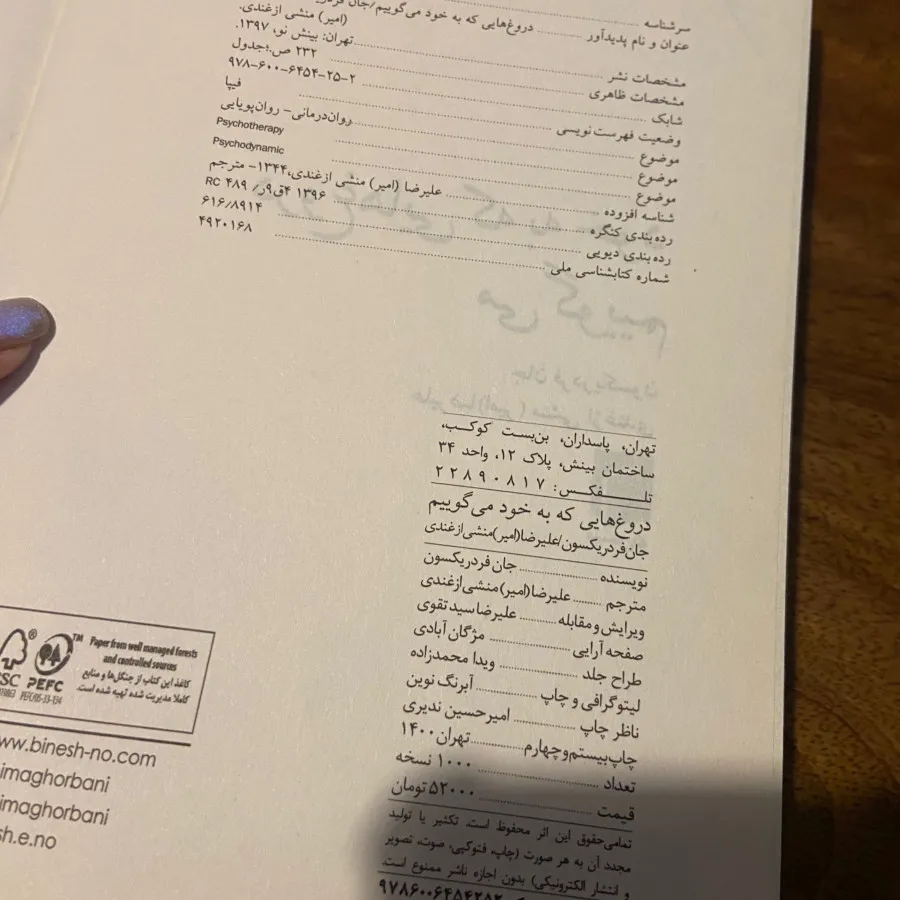 سرشناسه
عنوان و نام پدیدآور .......... دروغ‌هایی که به خود می‌گوییم/جان
(امیر) منشی ازغندی.
مشخصات نشر .......... تهران: بینش نو، ۱۳۹۷.
مشخصات ظاهری .......... ۲۳۲ ص.؛جدول
شابک .......... ۹۷۸-۶۰۰-۶۴۵۴-۲۵-۲
وضعیت فهرست نویسی .......... فیپا
موضوع .......... روان‌درمانی - روان‌پویایی
موضوع .......... Psychotherapy
موضوع .......... Psychodynamic
شناسه افزوده .......... علیرضا (امیر) منشی ازغندی،۱۳۴۴- مترجم
رده‌بندی کنگره .......... ۱۳۹۶ ۴ق۹ر/ RC ۴۸۹
رده‌بندی دیویی .......... ۶۱۶/۸۹۱۴
شماره کتابشناسی ملی .......... ۴۹۲۰۱۶۸
می گوییم
جان فردریکسون
علیرضا (امیر) منشی ازغندی
تهران، پاسداران، بن‌بست کوکب،
ساختمان بینش، پلاک ۱۲، واحد ۳۴
تلفکس: ۲۲۸۹۰۸۱۷
دروغ‌هایی که به خود می‌گوییم
جان فردریکسون/علیرضا(امیر)منشی‌ازغندی
نویسنده .......... جان فردریکسون
مترجم .......... علیرضا(امیر)منشی‌ازغندی
ویرایش و مقابله .......... علیرضا سیدتقوی
صفحه آرایی .......... مژگان آبادی
طراح جلد .......... ویدا محمدزاده
لیتوگرافی و چاپ .......... آبرنگ نوین
ناظر چاپ .......... امیرحسین ندیری
چاپ‌بیستم‌وچهارم .......... تهران ۱۴۰۰
تعداد .......... ۱۰۰۰ نسخه
قیمت .......... ۵۲۰۰۰ تومان
تمامی‌حقوق این اثر محفوظ است. تکثیر یا تولید
مجدد آن به هر صورت (چاپ، فتوکپی، صوت، تصویر
و انتشار الکترونیکی) بدون اجازه ناشر ممنوع است.
۹۷۸۶۰۰۶۴۵۴۲۵۲
Paper from well managed forests
and controlled sources
کاغذ این کتاب از جنگل‌ها و منابع
کاملا مدیریت شده تهیه شده است.
SC
PEFC
PEFC/05-33-134
ww.binesh-no.com
imaghorbani
imaghorbani
sh.e.no